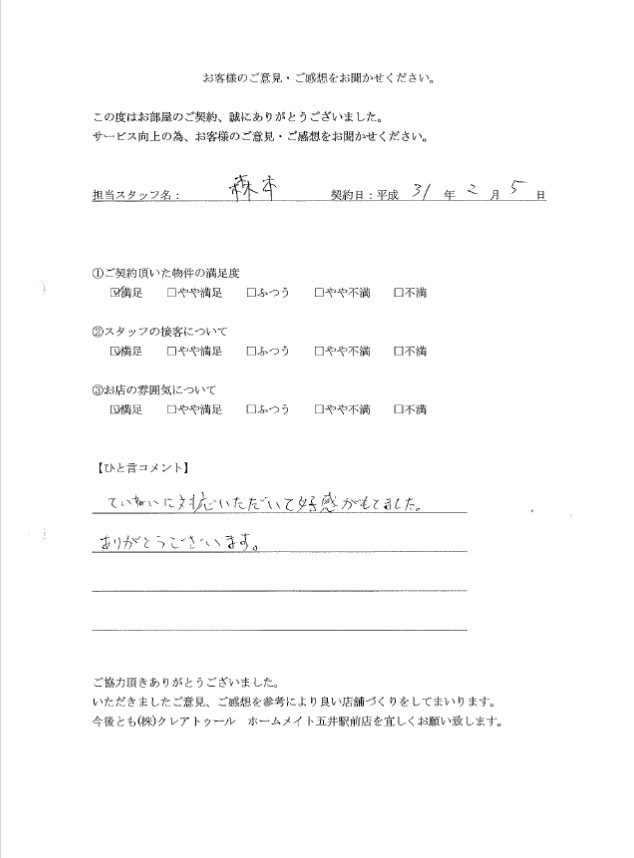 お客様のご意見・ご感想をお聞かせください。
この度はお部屋のご契約、誠にありがとうございました。
サービス向上の為、お客様のご意見・ご感想をお聞かせください。
担当スタッフ名： 森本 契約日：平成 31 年 2 月 5 日
①ご契約頂いた物件の満足度
☑満足 □やや満足 □ふつう □やや不満 □不満
②スタッフの接客について
☑満足 □やや満足 □ふつう □やや不満 □不満
③お店の雰囲気について
☑満足 □やや満足 □ふつう □やや不満 □不満
【ひと言コメント】
ていねいに対応いただいて好感がもてました。
ありがとうございます。
ご協力頂きありがとうございました。
いただきましたご意見、ご感想を参考により良い店舗づくりをしてまいります。
今後とも(株)クレアトゥール　ホームメイト五井駅前店を宜しくお願い致します。